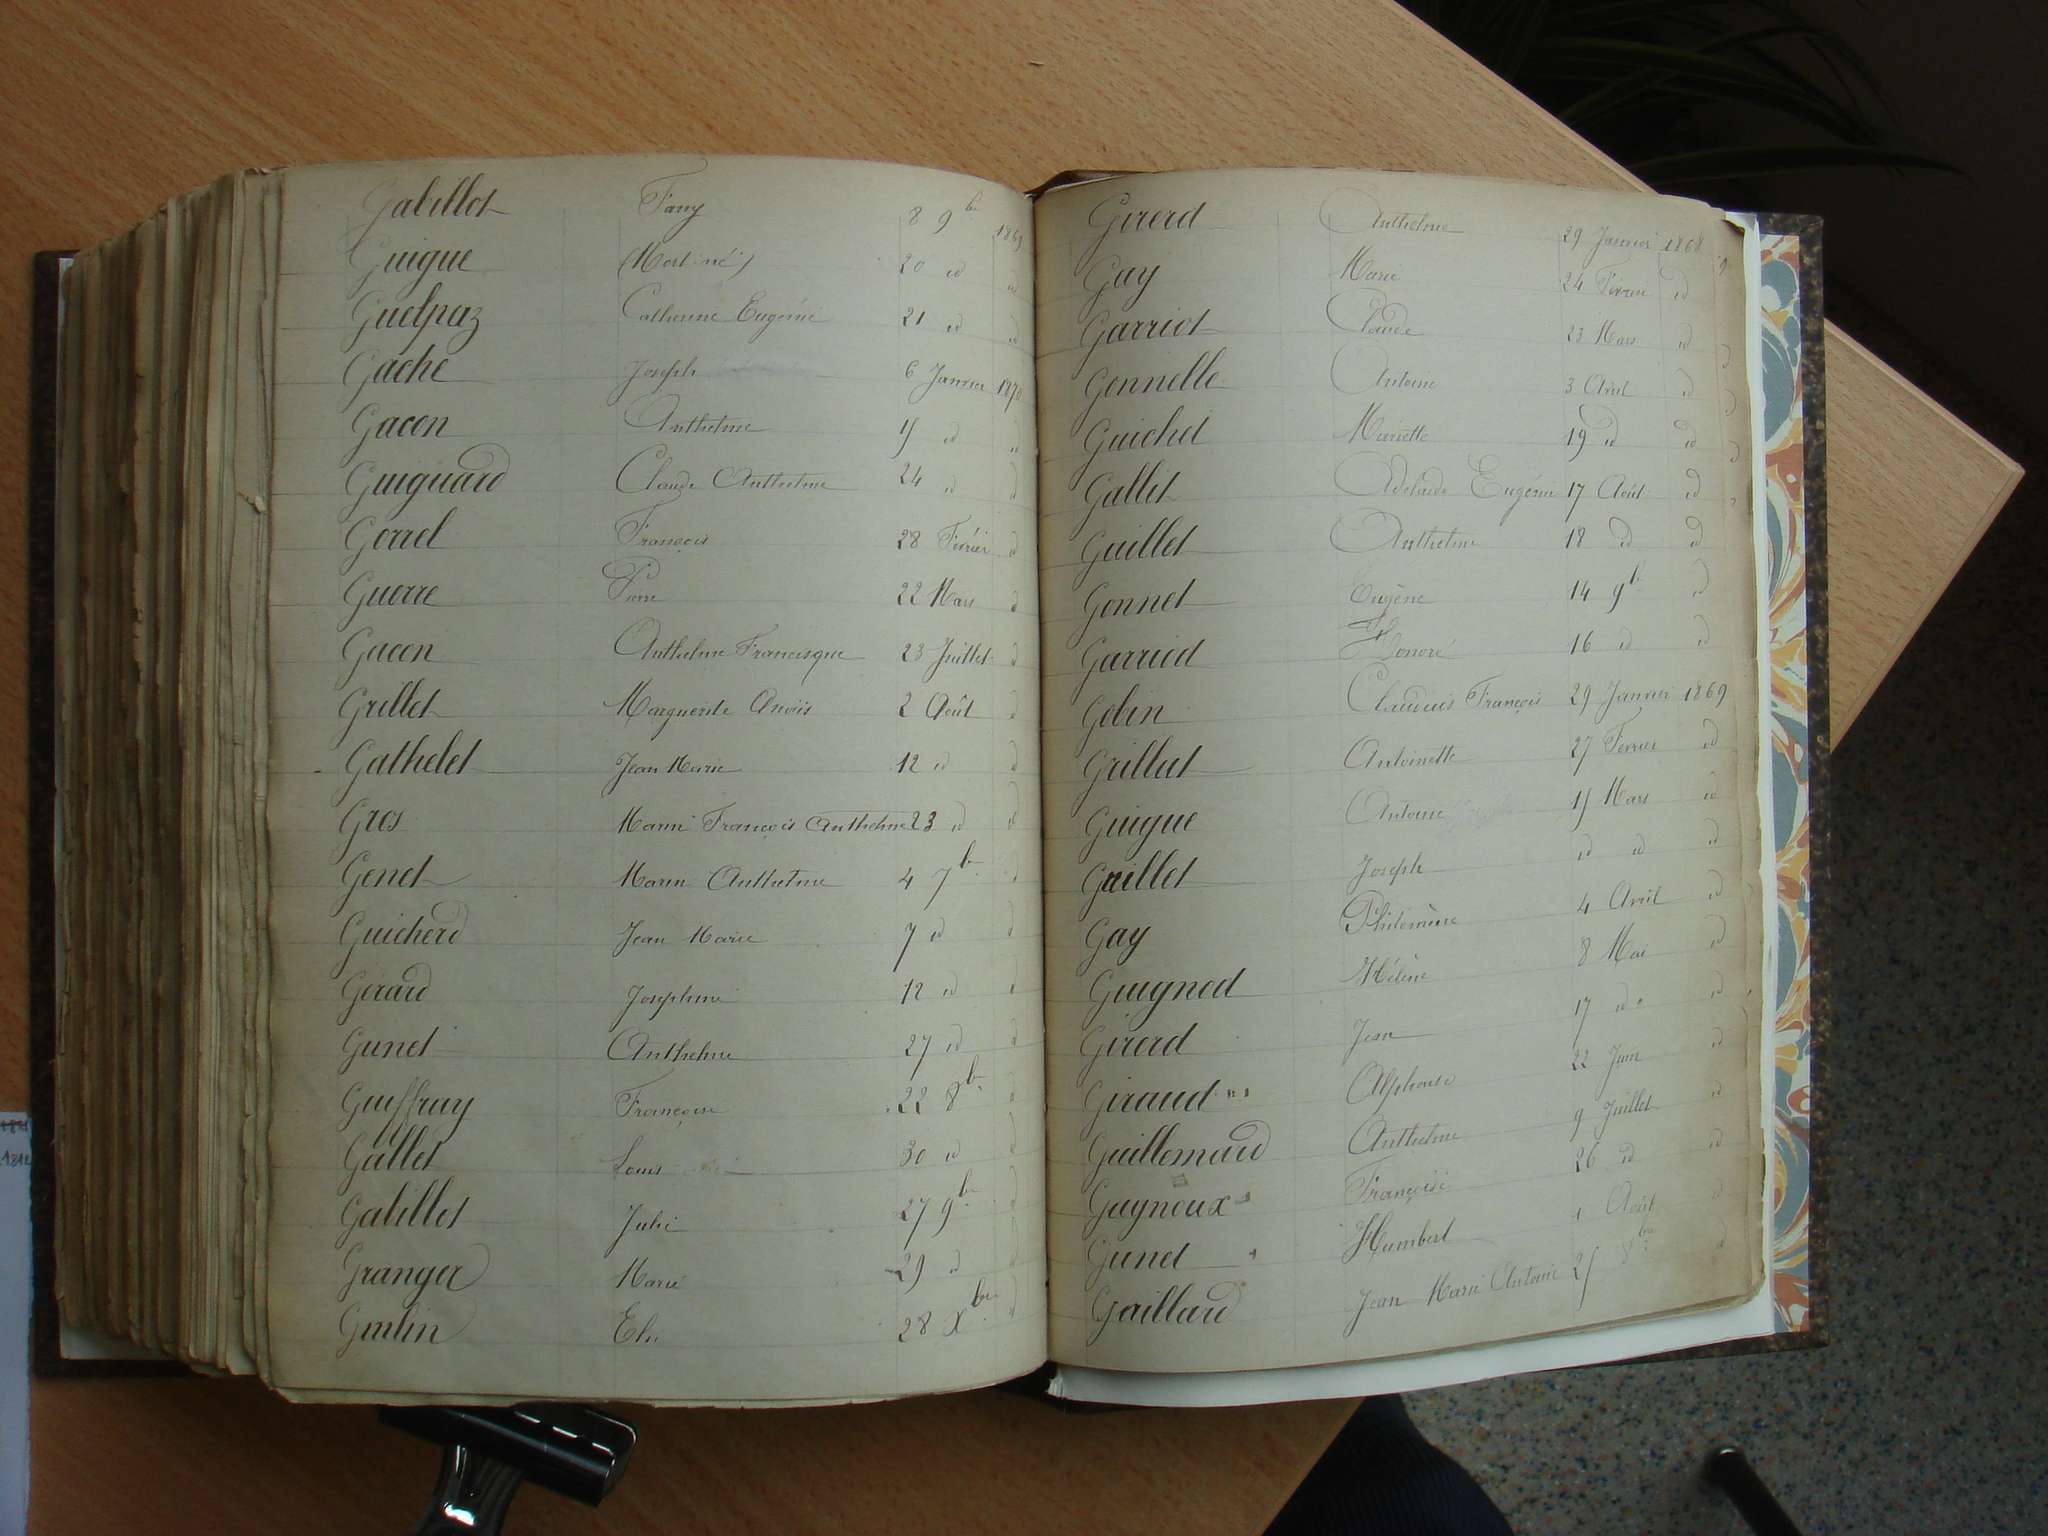 Gabillot Fany 8 9bre 1869
Guigue (Mort né) 20 id id
Guelpaz Catherine Eugénie 21 id id
Gache Joseph 6 Janvier 1870
Gacon Anthelme 15 id id
Guiguard Claude Anthelme 24 id id
Gorrel François 28 Février id
Guerre Pierre 22 Mars id
Gacon Anthelme Francisque 23 Juillet id
Grillet Marguerite Anaïs 2 Août id
Gathelet Jean Marie 12 id id
Gros Marie François Anthelme 23 id id
Genet Marin Anthelme 4 7bre id
Guicherd Jean Marie 7 id id
Girard Joséphine 12 id id
Gunet Anthelme 27 id id
Guiffray Françoise 22 8bre id
Gallet Louis 30 id id
Gabillot Julie 27 9bre id
Granger Marie 29 id id
Gm̂lin 28 Xbre id
Girerd Anthelme 29 Janvier 1868
Guy Marie 24 Février id
Garriot Claude 23 Mars id
Gonnelle Antoine 3 Avril id
Guichet Mariette 19 id id
Gallet Adelaide Eugénie 17 Août id
Guillet Anthelme 18 id id
Gonnet Eugène 14 9bre id
Garriod Honoré 16 id id
Gobin Claudius François 29 Janvier 1869
Grillat Antoinette 27 Fevrier id
Guigue Antoine 15 Mars id
Guillet Joseph id id id
Gay Philomène 4 Avril id
Guignod Hélène 8 Mai id
Girerd Jean 17 id id
Giraud Alphonse 22 Juin id
Guillemard Anthelme 9 Juillet id
Gagneux Françoise 26 id id
Gunet Humbert 1 Août id
Gaillard Jean Marie Antoine 25 8bre id